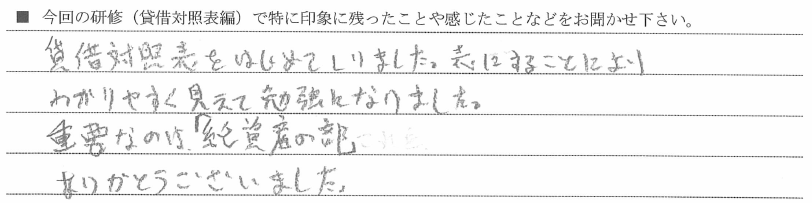 ■ 今回の研修（貸借対照表編）で特に印象に残ったことや感じたことなどをお聞かせ下さい。
貸借対照表をはじめてしりました。表にすることにより
わかりやすく見えて勉強になりました。
重要なのは「純資産の部」
ありがとうございました。